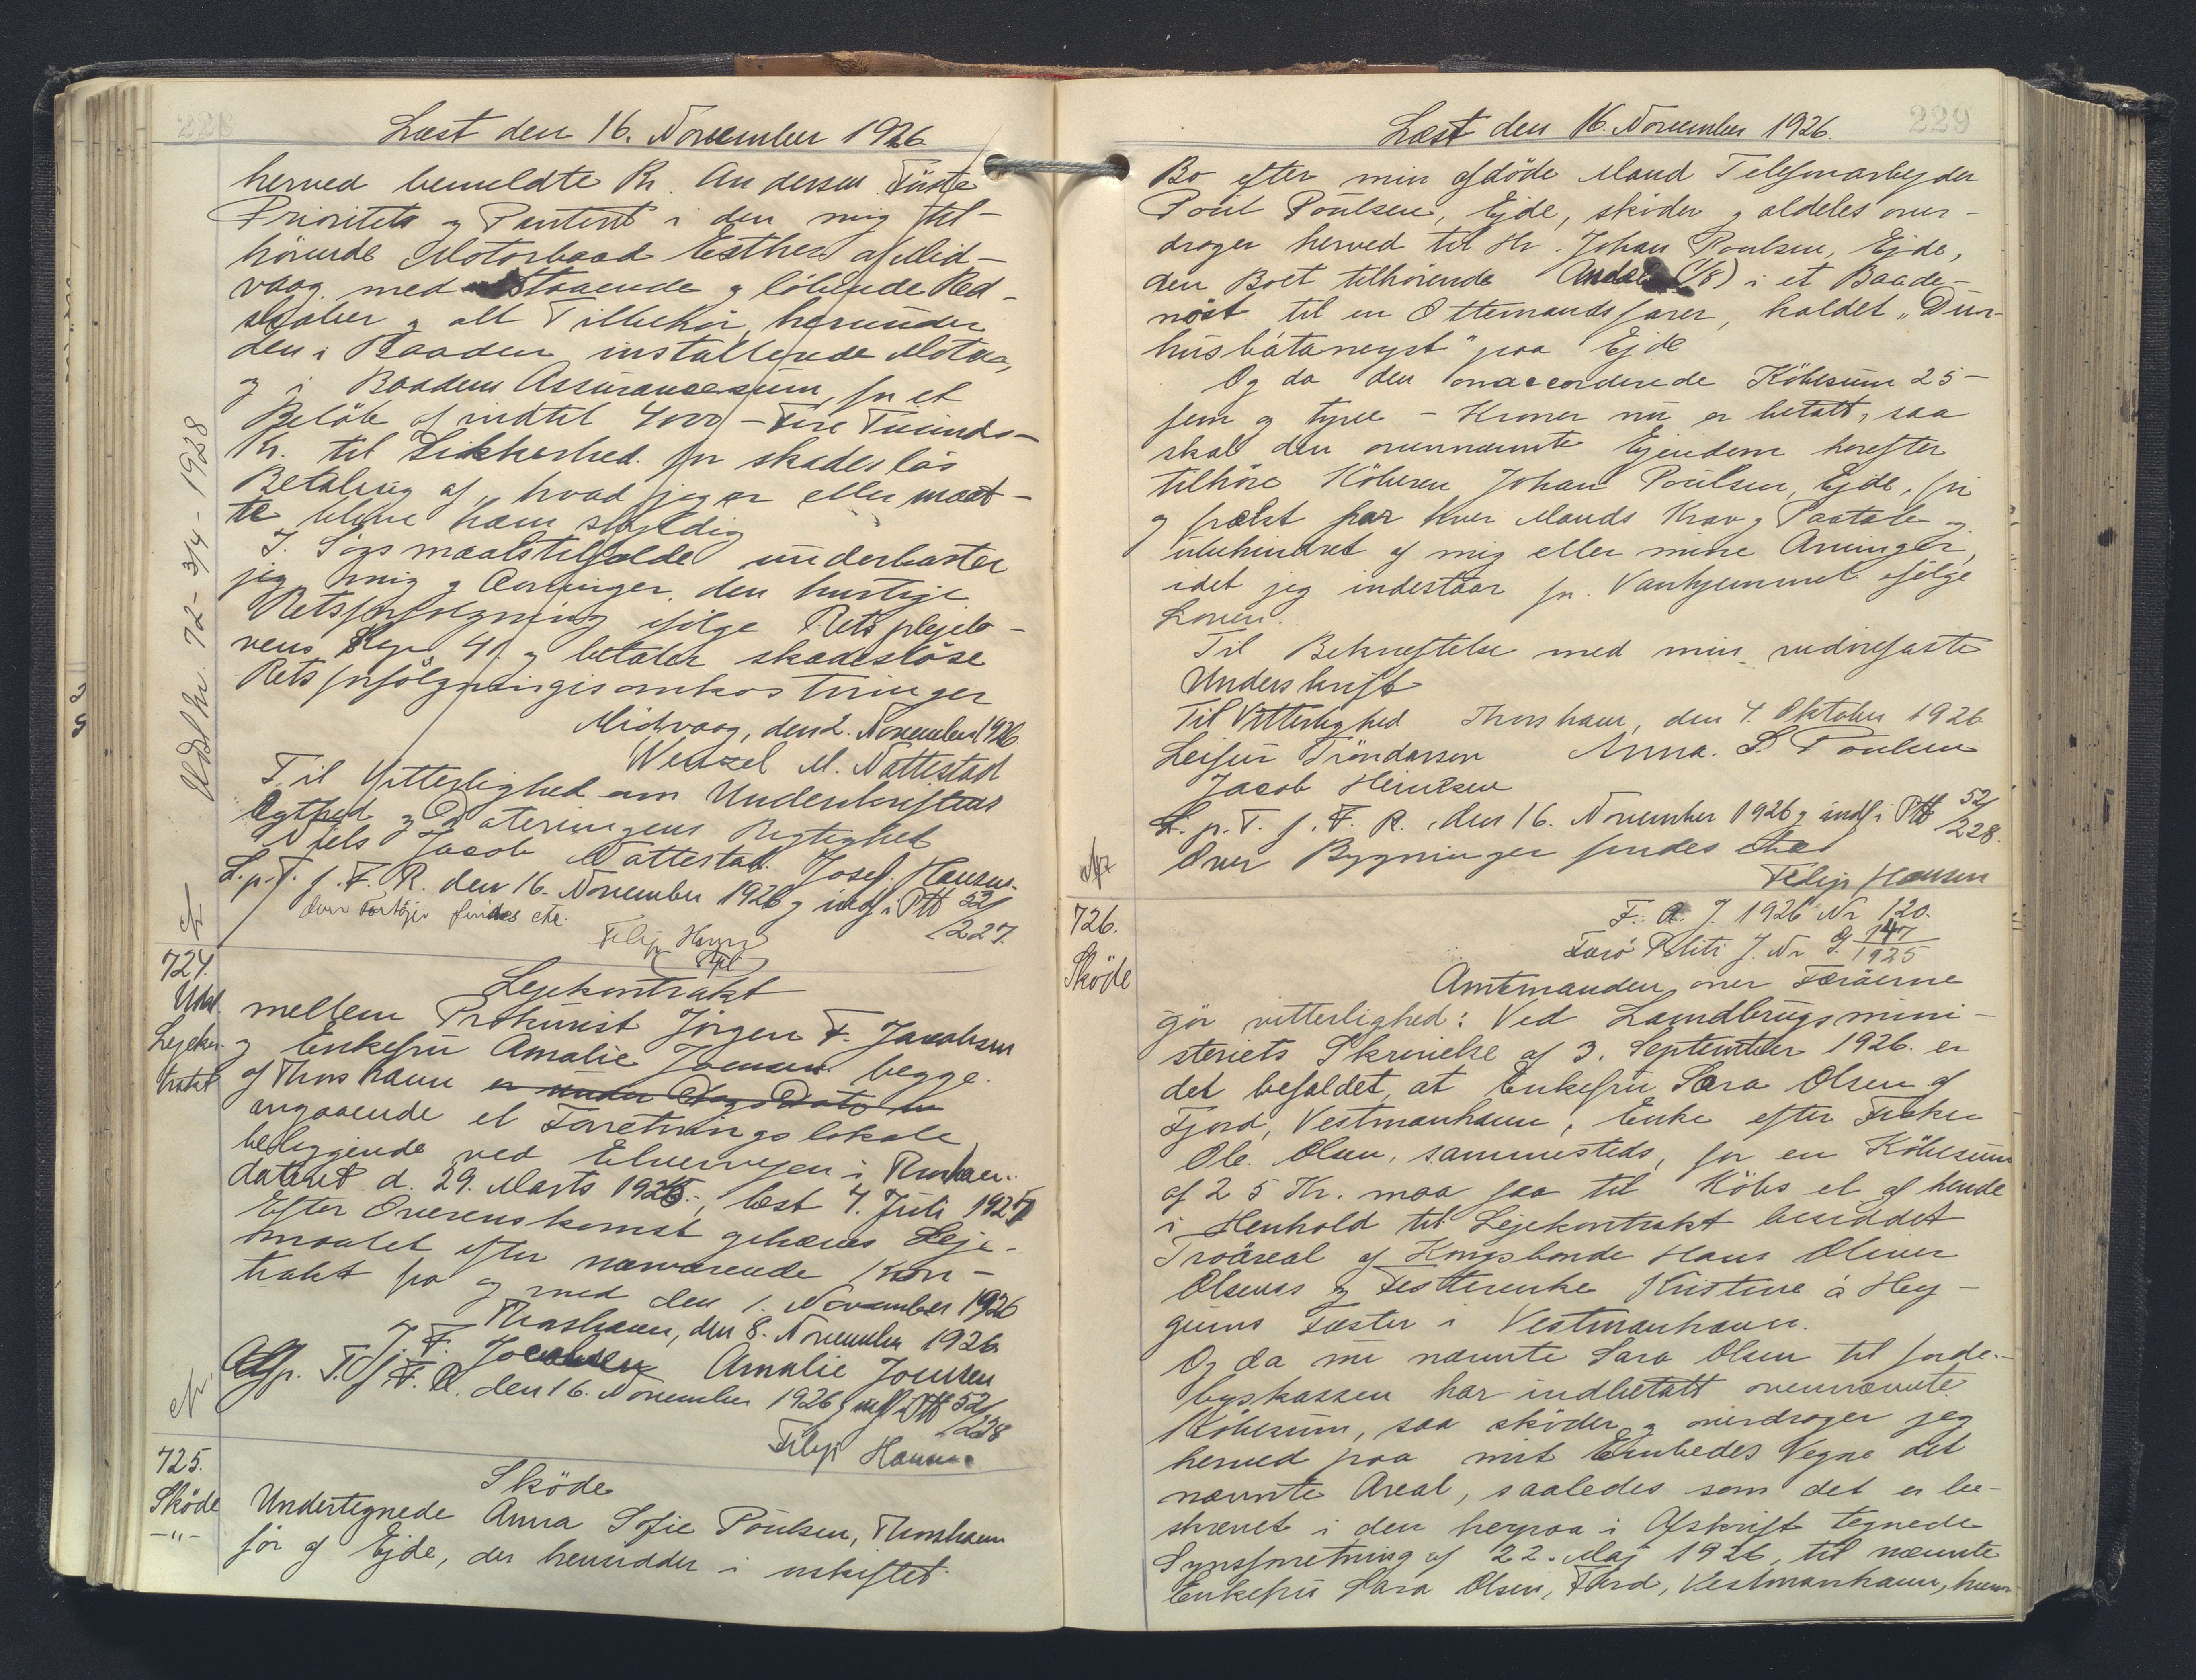 228
Læst den 16. November 1926.
herved bemeldte Kr. Andersen Første
Prioritets og Panteret i den mig til-
hørende Motorbaad Esther af Mid-
vaag med staaende og løbende Red-
skaber og alt Tilbehør, herunder
den i Baaden installerede Motor,
og i Baadens Assurancesum, for et
Beløb af indtil 4000 - Fire Tusinds -
Kr. til Sikkerhed for skadesløs
Betaling af, hvad jeg er eller maat-
te blive ham skyldig
I Søgsmaalstilfælde underkaster
jeg mig og Arvinger den hurtige
Retsforfølgning ifølge Retsplejelo-
vens Kap 41 og betaler skadesløse
Retsforfølgningsomkostninger
Midvaag, den 2. November 1926
Wenzel M. Nattestad
Til Vitterlighed om Underskriftens
Ægthed og Dateringens Rigtighed
Niels Jacob Nattestad. Josef Hansen.
L. p. T. f. F. R. den 16. November 1926 og indf. i Ptb 52/227.
Over Fartøjer findes etc.
Filip Hansen
Aflst. 72 - 3/4 - 1928
724.
Udsl.
Lejekon
trakt
Lejekontrakt
mellem Prokurist Jørgen F. Jacobsen
og Enkefru Amalie Joensen begge
af Thorshavn er under Dags Dato
angaaende et Forretningslokale
beliggende ved Elvervejen i Thorshavn
dateret d. 29. Marts 1925, læst 7. Juli 1925
Efter Overenskomst gehæves Leje-
maalet efter nærværende Kon-
trakt fra og med den 1. November 1926
Thorshavn, den 8. November 1926
J. F. Jacobsen Amalie Joensen
Afl. p. T. f. F. R. den 16. November 1926 og indf. i Ptb 52/228
Filip Hansen
725.
Sköde
-"-
Sköde
Undertegnede Anna Sofie Poulsen, Thorshavn
før af Ejde, der hensidder i uskiftet
229
Læst den 16. November 1926.
Bo efter min afdøde Mand Telefonarbejder
Poul Poulsen, Ejde, skøder og aldeles over-
drager herved til Hr. Johan Poulsen, Ejde,
den Boet tilhørende Andel (1/8) i et Baade-
nöst til en Ottemandsfarer, kaldet "Dur-
husbátaneyst" paa Ejde
Og da den omaccorderede Købesum 25 -
fem og tyve - Kroner nu er betalt, saa
skal den ovennævnte Ejendom herefter
tilhøre Køberen Johan Poulsen, Ejde, fri
og frelst for hver Mands Krav og Paatale og
ubehindret af mig eller mine Arvinger,
idet jeg indestaar for Vanhjemmel ifølge
Loven.
Til Bekræftelse med min medvitfaste
Underskrift
Til Vitterlighed Thorshavn, den 4. Oktober 1926
Leifur Tróndarson Anna. S. Poulsen
Jacob Heinesen
L. p. T. f. F. R. den 16. November 1926 og indf. i Ptb 52/228.
Over Bygninger findes etc
Filip Hansen
726.
Sköde
F. A. J. 1926 Nr 120.
Færø Politi J. Nr G 147/1925
Amtmanden over Færøerne
gör vitterlighed: Ved Landbrugsmini-
steriets Skrivelse af 3. September 1926 er
det befaldet, at Enkefru Sara Olsen af
Fjord, Vestmanhavn, Enke efter Fisker
Ole Olsen, sammesteds, for en Købesum
af 25 Kr. maa faa til Købs et af hende
i Henhold til Lejekontrakt besiddet
Tröäreal af Kongsbonde Hans Oliver
Olsens og Fæsterenke Kristine á Hey-
gums Fæster i Vestmanhavn.
Og da nu nævnte Sara Olsen til Jorde-
bogskassen har indbetalt ovennævnte
Købesum, saa skøder og overdrager jeg
herved paa mit Embedes Vegne det
nævnte Areal, saaledes som det er be-
skrevet i den herpaa i Afskrift tegnede
Synsforretning af 22. Maj 1926, til nævnte
Enkefru Sara Olsen, Fjord, Vestmanhavn, hvem